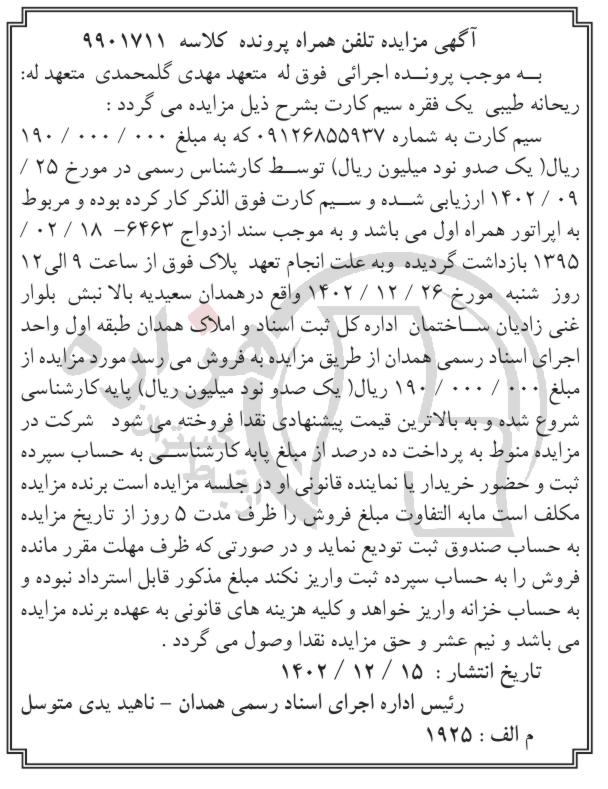 آگهی مزایده تلفن همراه پرونده کلاسه ۹۹۰۱۷۱۱
به موجب پرونده اجرائی فوق له متعهد مهدی گلمحمدی متعهد له:
ریحانه طیبی یک فقره سیم کارت بشرح ذیل مزایده می گردد :
سیم کارت به شماره ۰۹۱۲۶۸۵۵۹۳۷ که به مبلغ ۰۰۰ / ۰۰۰ / ۱۹۰
ریال( یک صدو نود میلیون ریال) توسط کارشناس رسمی در مورخ ۲۵ /
۰۹ / ۱۴۰۲ ارزیابی شده و سیم کارت فوق الذکر کار کرده بوده و مربوط
به اپراتور همراه اول می باشد و به موجب سند ازدواج ۶۴۶۳- ۱۸ / ۰۲ /
۱۳۹۵ بازداشت گردیده وبه علت انجام تعهد پلاک فوق از ساعت ۹ الی۱۲
روز شنبه مورخ ۲۶ / ۱۲ / ۱۴۰۲ واقع درهمدان سعیدیه بالا نبش بلوار
غنی زادیان ساختمان اداره کل ثبت اسناد و املاک همدان طبقه اول واحد
اجرای اسناد رسمی همدان از طریق مزایده به فروش می رسد مورد مزایده از
مبلغ ۰۰۰ / ۰۰۰ / ۱۹۰ ریال( یک صدو نود میلیون ریال) پایه کارشناسی
شروع شده و به بالاترین قیمت پیشنهادی نقدا فروخته می شود شرکت در
مزایده منوط به پرداخت ده درصد از مبلغ پایه کارشناسی به حساب سپرده
ثبت و حضور خریدار یا نماینده قانونی او در جلسه مزایده است برنده مزایده
مکلف است مابه التفاوت مبلغ فروش را ظرف مدت ۵ روز از تاریخ مزایده
به حساب صندوق ثبت تودیع نماید و در صورتی که ظرف مهلت مقرر مانده
فروش را به حساب سپرده ثبت واریز نکند مبلغ مذکور قابل استرداد نبوده و
به حساب خزانه واریز خواهد و کلیه هزینه های قانونی به عهده برنده مزایده
می باشد و نیم عشر و حق مزایده نقدا وصول می گردد .
تاریخ انتشار : ۱۵ / ۱۲ / ۱۴۰۲
رئیس اداره اجرای اسناد رسمی همدان - ناهید یدی متوسل
م الف : ۱۹۲۵